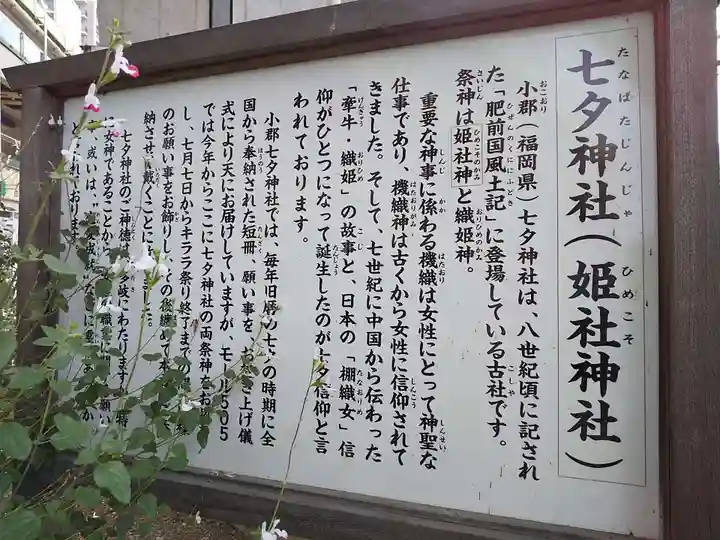 七夕神社(姫社神社)
小郡(福岡県)七夕神社は、八世紀頃に記され
た「肥前国風土記」に登場している古社です。
祭神は姫社神と織姫神。
重要な神事に係わる機織は女性にとって神聖な
仕事であり、機織神は古くから女性に信仰されて
きました。そして、七世紀に中国から伝わった
「牽牛・織姫」の故事と、日本の「棚織女」信
仰がひとつになって誕生したのが七夕信仰と言
われております。
小郡七夕神社では、毎年旧暦の七夕の時期に全
国から奉納された短冊、願い事を、お焚き上げ儀
式により天にお届けしていますが、モール505
では今年からここに七夕神社の両祭神をお
し、七月七日からキララ祭り終了までの
のお願い事をお飾りし、その後纏めて本
納させて戴くことに
七夕神社のご神徳は多岐にわたります
女神であることから
或いは、
とされております